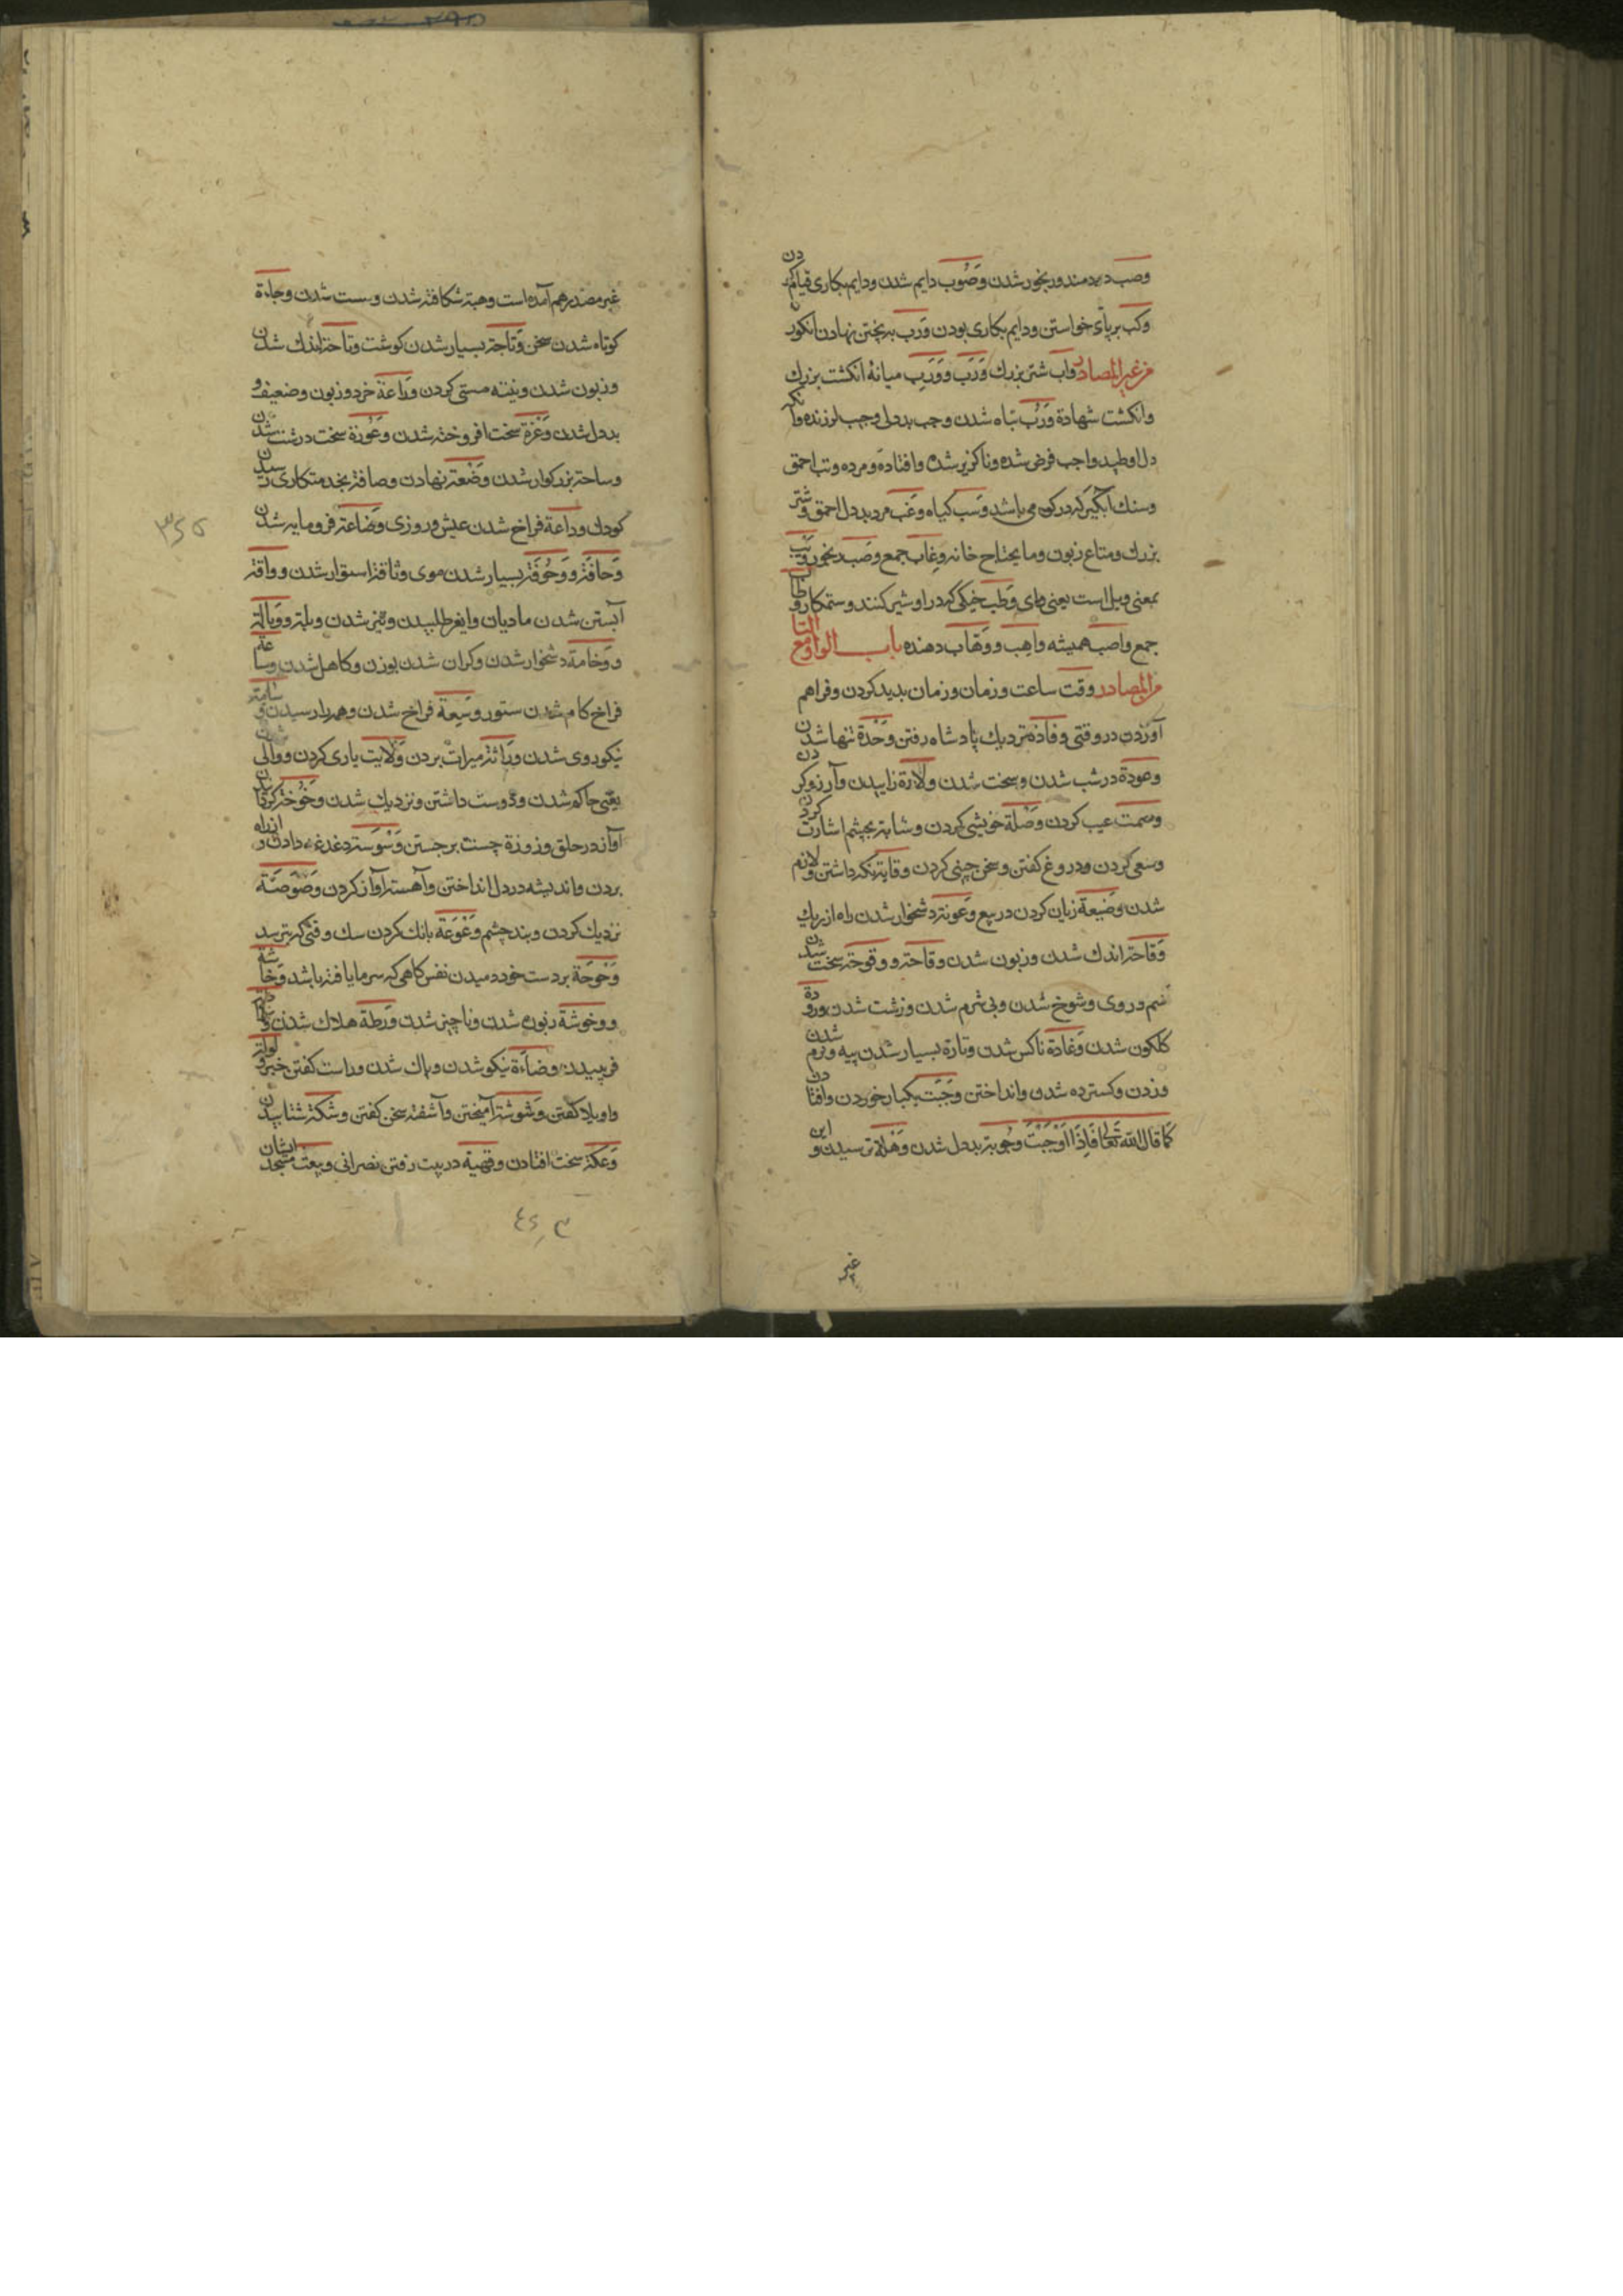 وصب دردمند ورنجور شدن وَصُوب دایم شدن ودایم بکاری قیام کردن
وکب برپای خواستن ودایم بکاری بودن وَرَب به پختن نهادن انکور
من غیر المصادر واب شتر بزرك وَرَب ووَرَب میانهٔ انکشت بزرك
وانکشت شهادة وَرَب تباه شدن وجب بددلی وجیب لرزنده وآنکه
دل او طپد واجب فرض شده وناکزیر شده وافتاده ومرده وتب احمق
وسنك آبکیر که در کوه می باشد وَسَب کیاه وَغب مرد بددل احمق وشتر
بزرك ومتاع زبون وما یحتاج خانه وِغاب جمع وصَب رنجور وَیب
بمعنی ویل است یعنی وای وَطب خیکی که در او شیر کنند وستمکار وِطاب
جمع واصب همیشه واهِب ووَهّاب دهنده باب الواو مع التا
من المصادر وقت ساعت وزمان وزمان پدید کردن وفراهم
آوردن در وقتی وفادة نزدیك پادشاه رفتن وَحدة تنها شدن
وعودة درشب شدن وسخت شدن ولادة زاییدن وآرزو کردن
وسمت عیب کردن وَصلة خویشی کردن وشایة بچشم اشارت کردن
وسعی کردن ودروغ کفتن وسخن چینی کردن وقایة نکه داشتن ولازم
شدن وَضیعة زیان کردن در بیع وَعونة دشخوار شدن راه از ریك
وَقاحة اندك شدن وزبون شدن وقاحة ووقوحة سخت شدن
سم وروی وشوخ شدن وبی شرم شدن وزشت شدن ورودة
کلکون شدن وَغادة ناکس شدن وتارة بسیار شدن پیه ونرم شدن
وزدن وکسترده شدن وانداختن وَجبَت یکبار خوردن وافتادن
کما قال الله تعالی فَاِذَا وَجَبَتْ وجوبة بددل شدن وَهلة ترسیدن واین
غیر
غیر مصدر هم آمده است وهیة شکافته شدن وسست شدن وجاءة
کوتاه شدن سخن وَثاجة بسیار شدن کوشت وتاحة اندك شدن
وزبون شدن ونیه مستی کردن وَراعة خرد وزبون وضعیف و
بددل شدن وَغرة سخت افروخته شدن وَعورة سخت درشت شدن
وساحة بزرکوار شدن وَضعة نهادن وصافة بخدمتکاری رسیدن
کودك ودَاعة فراخ شدن عیش وروزی وَضاعة فرومایه شدن
وَحافة ووَحُوفة بسیار شدن موی وثاقة استوار شدن ووداقة
آبستن شدن مادیان وایغر طلبیدن وتیز شدن وبلة ووبالة
ووَخامة دشخوار شدن وکران شدن بوزن وکاهل شدن وساعة
فراخ کام شدن ستور وسِیعة فراخ شدن وهمه را رسیدن وَسامة
نیکوروی شدن وِراثة میراث بردن وَلایت یاری کردن ووالی شدن
یعنی حاکم شدن ودوست داشتن ونزدیك شدن وخَوخة کردانیدن
آواز در حلق وزوزة چست برجستن وَسْوَسة دغدغه دادن واز راه
بردن واندیشه در دل انداختن وآهسته آواز کردن وَصْوَصَة
نزدیك کردن وبند چشم وَعْوَعَة بانك کردن سك وقتی که بترسد
وَحوحَة بر دست خود دمیدن نفس کاهی که سرما یافته باشد وَخاشة
ووخوشة زبون شدن وناچیز شدن وَرطة هلاك شدن
فریبیدن وضاءة نیکو شدن وپاك شدن وراست کفتن خبر وَلولة
واویلا کفتن وَشوشة آمیختن وآشفته سخن کفتن وشکة شتابیدن
وَعکة سخت افتادن وقهیة در بیت رفتن نصرانی وبیعت مسجد ایشان